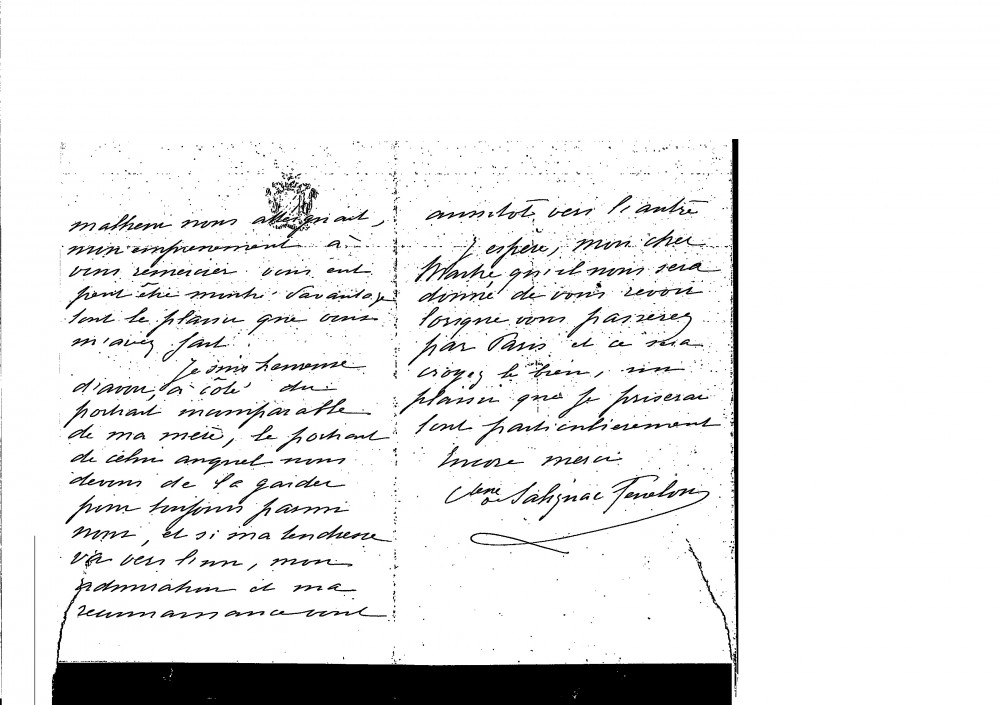 malheur nous atteignait,
mon empressement à
vous remercier vous eut
peut être montré davantage
tout le plaisir que vous
m'avez fait
Je suis heureuse
d'avoir, à côté du
portrait incomparable
de ma mère, le portrait
de celui auquel nous
devons de la garder
pour toujours parmi
nous, et si ma tendresse
va vers l'une, mon
admiration et ma
reconnaissance vont
aussitôt vers l'autre
J'espère, mon cher
Maître qu'il nous sera
donné de vous revoir
lorsque vous passerez
par Paris et ce sera
croyez le bien, un
plaisir que je priserai
tout particulièrement
Encore merci
de Salignac Fénelon